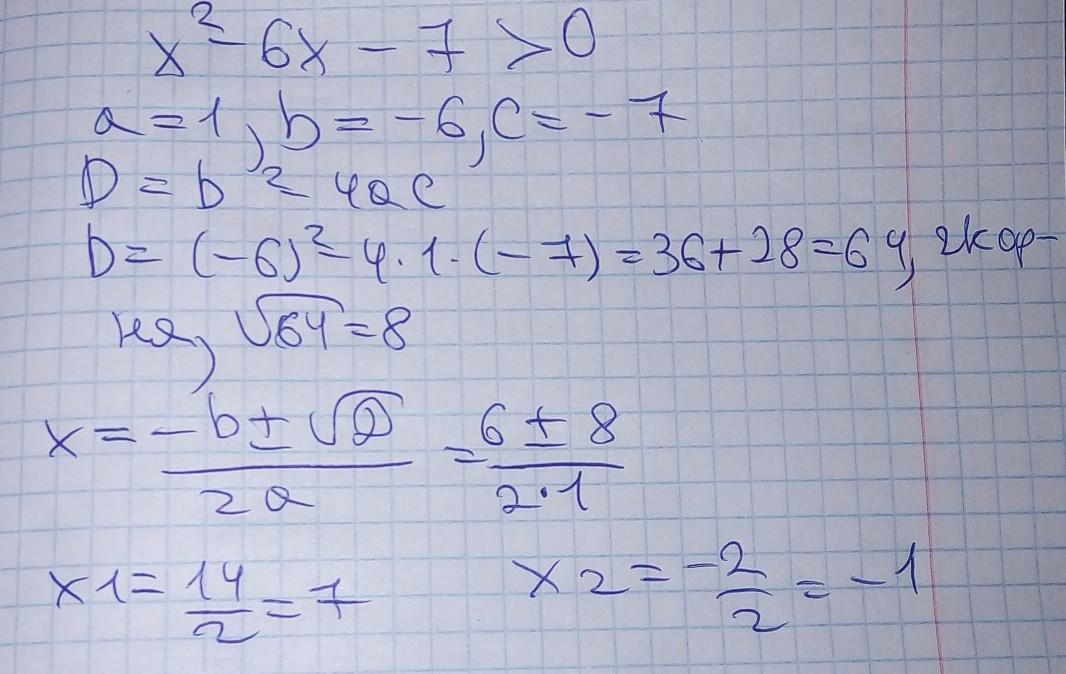 x² - 6x - 7 > 0
a = 1, b = -6, c = -7
D = b² - 4ac
D = (-6)² - 4·1·(-7) = 36 + 28 = 64, 2 кор-
ня, √64 = 8
x = (-b ± √D) / 2a = (6 ± 8) / 2·1
x1 = 14/2 = 7 x2 = -2/2 = -1